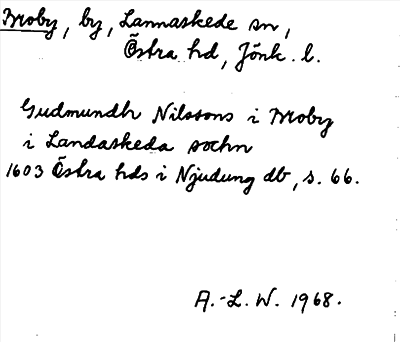 Moby, by, Lannaskede sn,
Östra hd, Jönk. l.
Gudmundh Nilssons i Moby
i Landaskeda sochn
1603 Östra hds i Njudung db, s. 66.
A.-L. W. 1968.